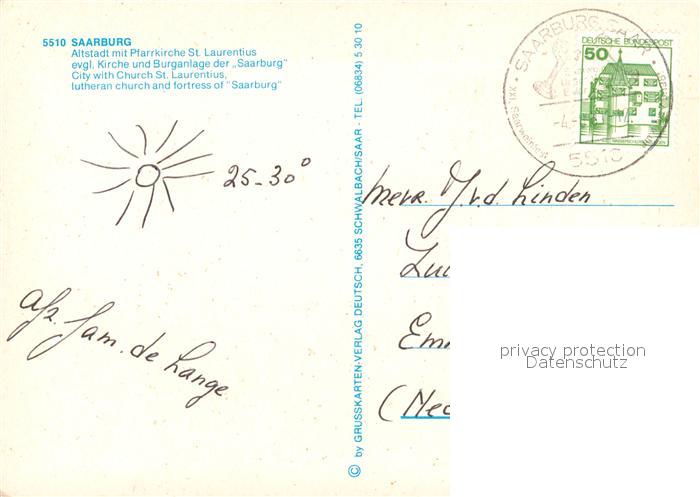 5510 SAARBURG
Altstadt mit Pfarrkirche St. Laurentius
evgl. Kirche und Burganlage der „Saarburg"
City with Church St. Laurentius,
lutheran church and fortress of "Saarburg"
25-30°
Afz. Fam. de Lange
© by GRUSSKARTEN-VERLAG DEUTSCH, 6635 SCHWALBACH/SAAR - TEL. (06834) 5 30 10
SAARBURG, SAAR
5510
50
DEUTSCHE BUNDESPOST
Mevr. J. v.d. Linden
Emm
(Ned
privacy protection
Datenschutz